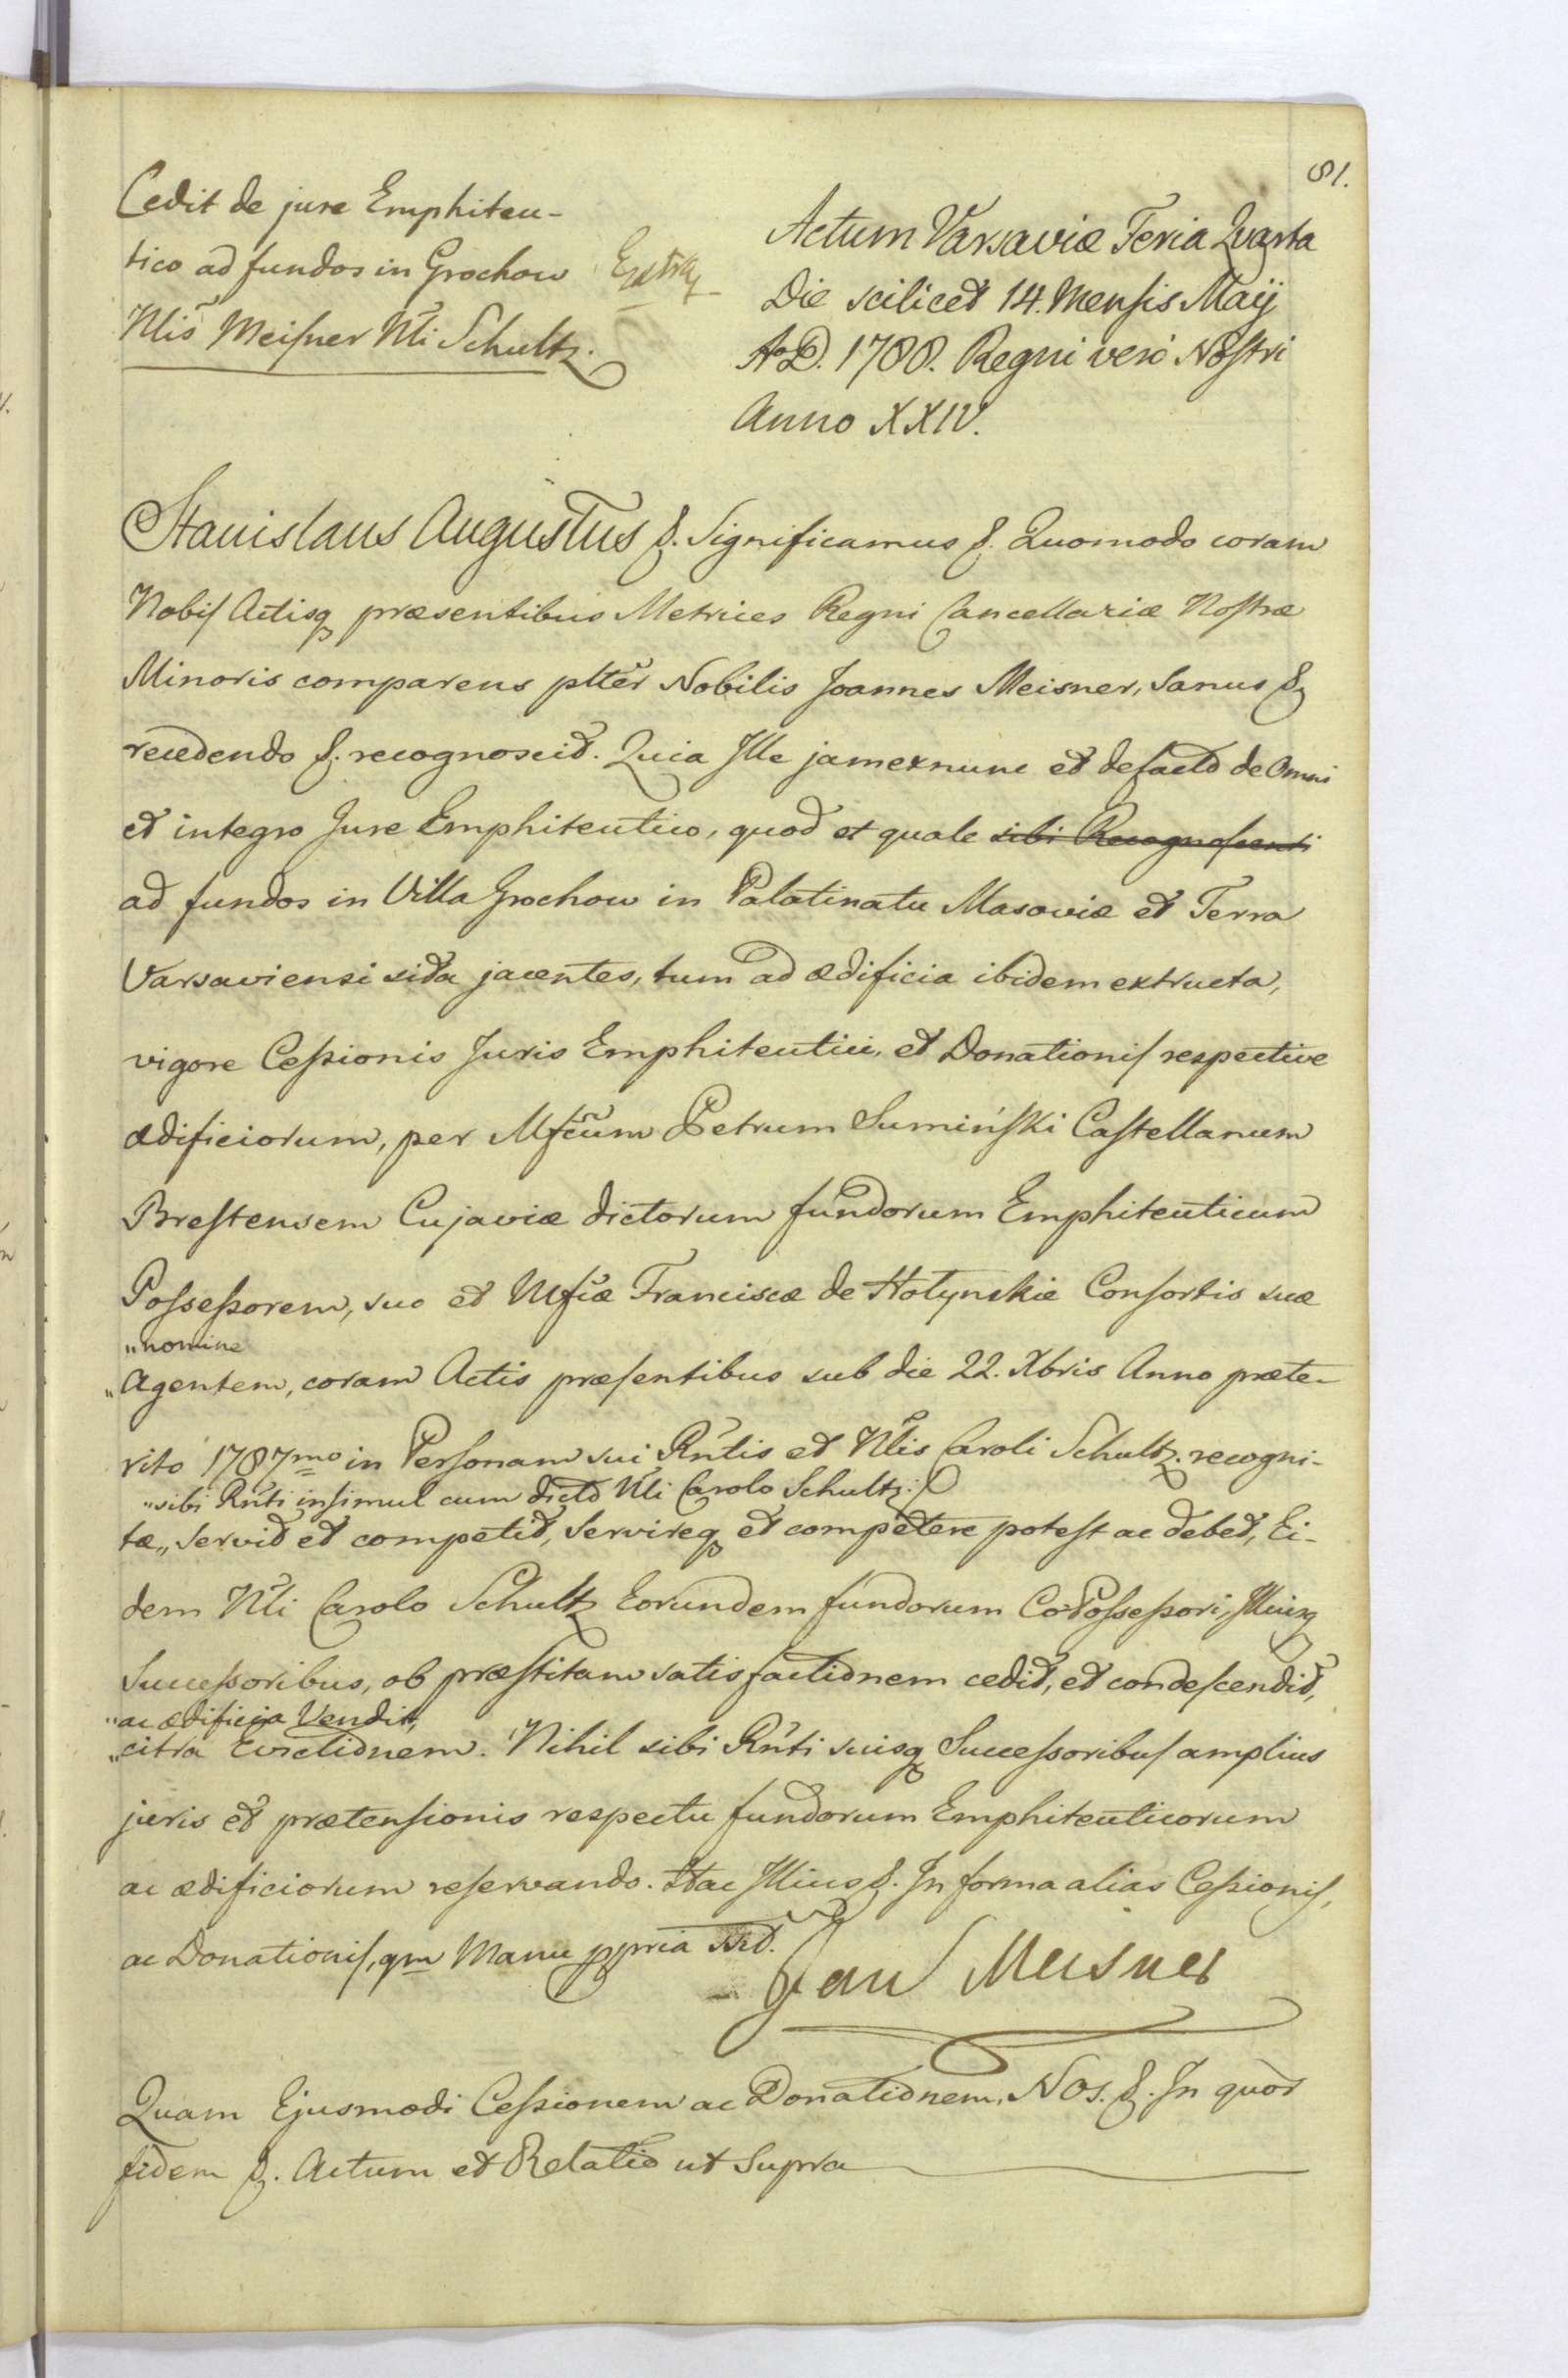 81.
Cedit de jure Emphiteu-
tico ad fundos in Grochow
Nlis Meisner Nli Schultz.
Extra
Actum Varsaviæ Feria Quarta
Die scilicet 14. Mensis Maij
A. D. 1788. Regni vero Nostri
Anno XXIV.
Stanislaus Augustus &. Significamus &. Quomodo coram
Nobis Actisq præsentibus Metrices Regni Cancellariæ Nostræ
Minoris comparens plter Nobilis Joannes Meisner, Sanus &
recedendo &. recognoscit. Quia Ille jamexnunc et defacto de Omni
et integro Jure Emphiteutico, quod et quale sibi Recognoscenti
ad fundos in Villa Grochow in Palatinatu Masoviæ et Terra
Varsaviensi sita jacentes, tum ad ædificia ibidem extructa,
vigore Cessionis Juris Emphiteutici, et Donationis respective
ædificiorum, per Mfcum Petrum Sumiński Castellanum
Brestensem Cujaviæ dictorum fundorum Emphiteuticum
Possessorem, suo et Mfcæ Franciscæ de Hotynskie Consortis suæ
"nomine
"Agentem, coram Actis præsentibus sub die 22. Xbris Anno præte-
rito 1787mo in Personam sui Rntis et Nlis Caroli Schultz recogni-
"sibi Rnti insimul cum dicto Nli Carolo Schultz:/
tæ,, servit et competit, servireq et competere potest ac debet, Ei-
dem Nli Carolo Schultz Eorundem fundorum CoPossessori, Illiusq
Successoribus, ob præstitam satisfactionem cedit, et condescendit,
"ac ædificia Vendit,
"citra Evictionem. Nihil sibi Rnti suisq Successoribus amplius
juris et prætensionis respectu fundorum Emphiteuticorum
ac ædificiorum reservando. Hac Illius &. In forma alias Cessionis,
ac Donationis, qm Manu ppria
Jan Meisner
Quam Ejusmodi Cessionem ac Donationem, Nos. &. In quor
fidem &. Actum et Relatio ut Supra